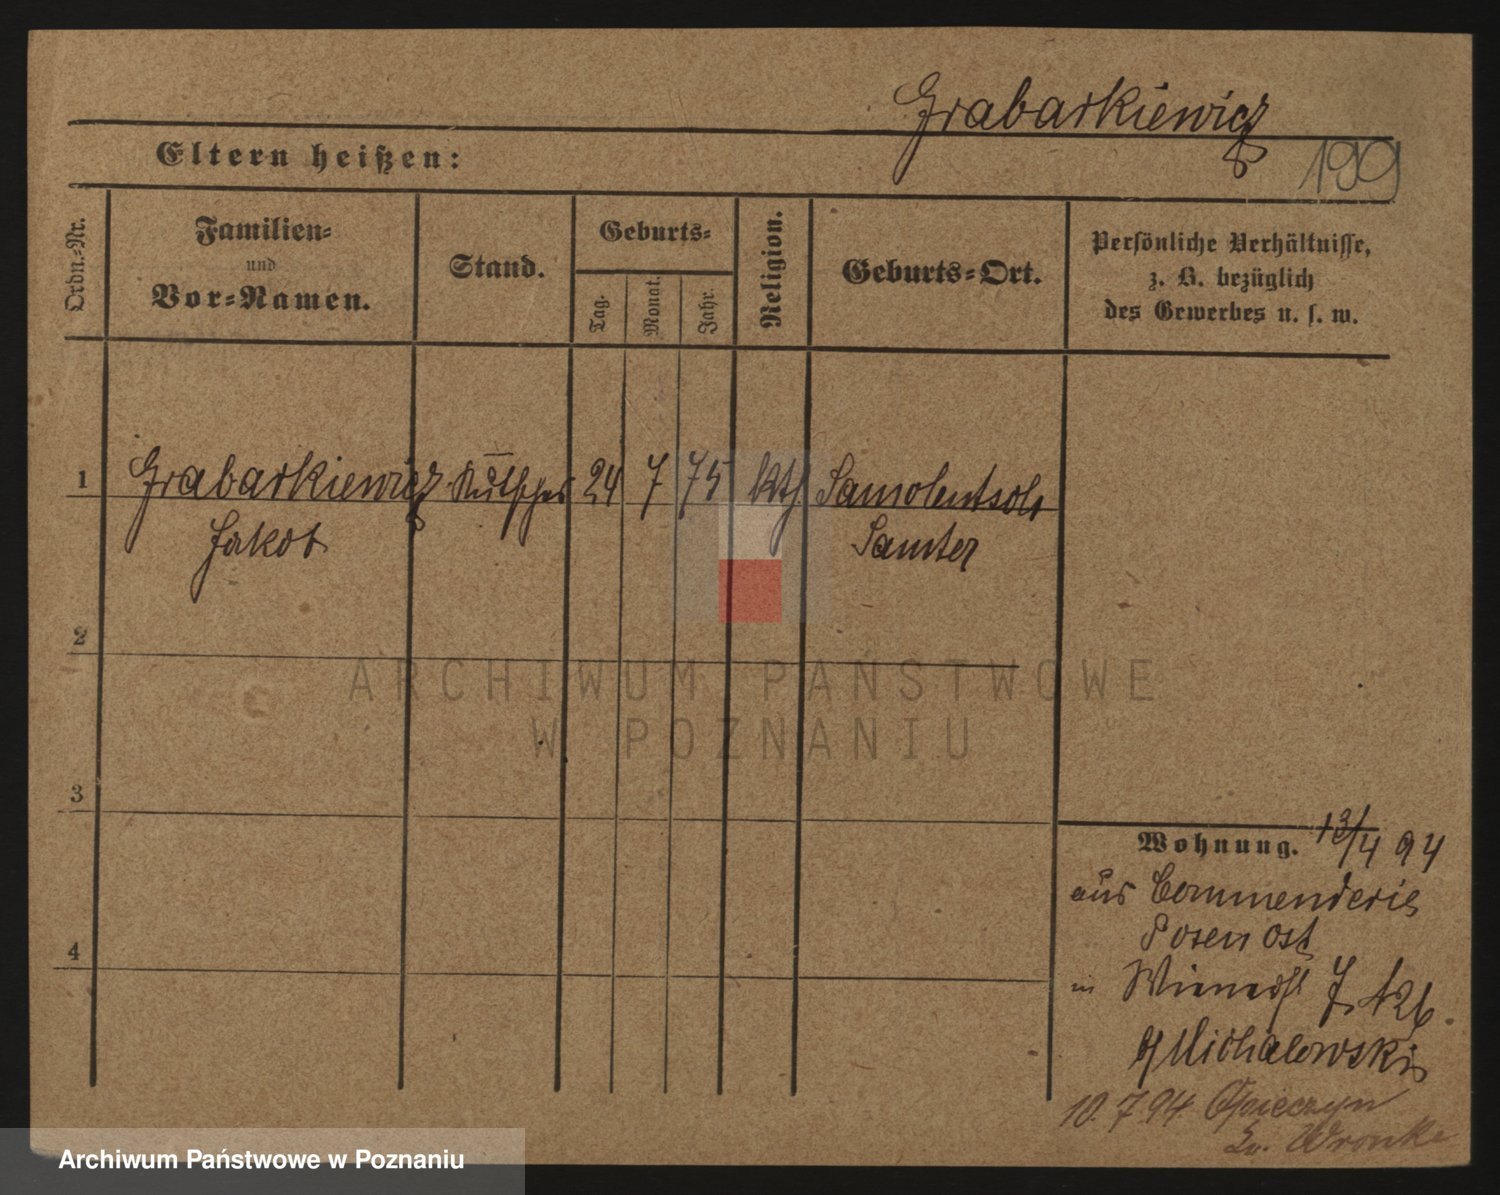 Grabarkiewicz
Eltern heißen:
199
Ordn.-Nr.
Familien-
und
Vor-Namen.
Stand.
Geburts-
Tag.
Monat.
Jahr.
Religion.
Geburts-Ort.
Persönliche Verhältnisse,
z. B. bezüglich
des Gewerbes u. s. w.
1 Grabarkiewicz Kutscher 24 7 75 kth Samolentsch
Jakob Samter
2
ARCHIWUM PAŃSTWOWE
W POZNANIU
3
Wohnung. 13/4 94
aus Commenderie
Posen ost
4
in
b/ Michalowski
10. 7. 94 Opieczyn
Wronke
Archiwum Państwowe w Poznaniu